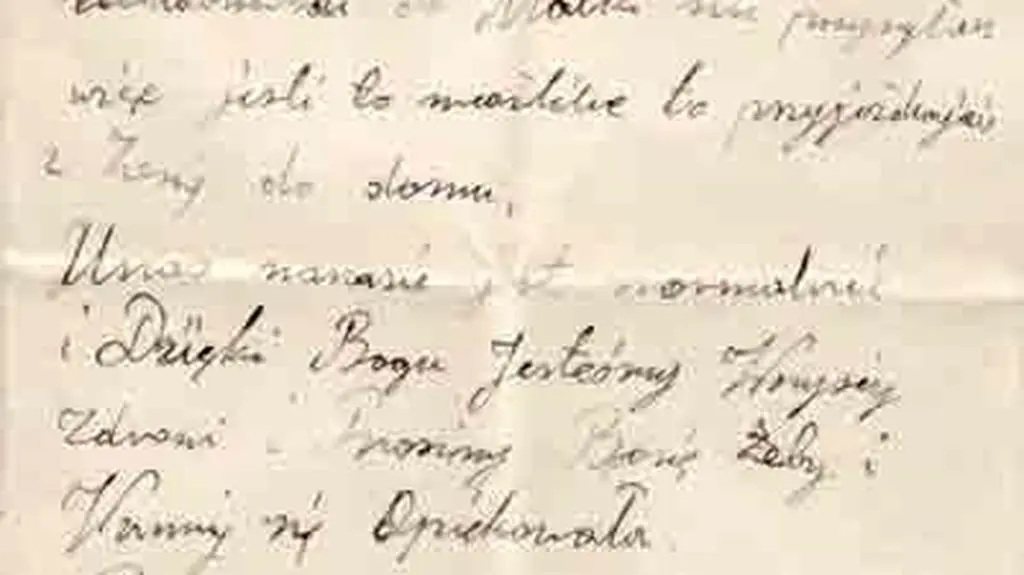 do Matki nie
więc jesli to możliwe to przyjeżdżajcie
z Żeną do domu,
Unas narazie jest normalnie
i Dzięki Bogu Jesteśmy Wszyscy
Zdrowi i Prosimy Bozię Żeby i
Wami się Opiekowała.